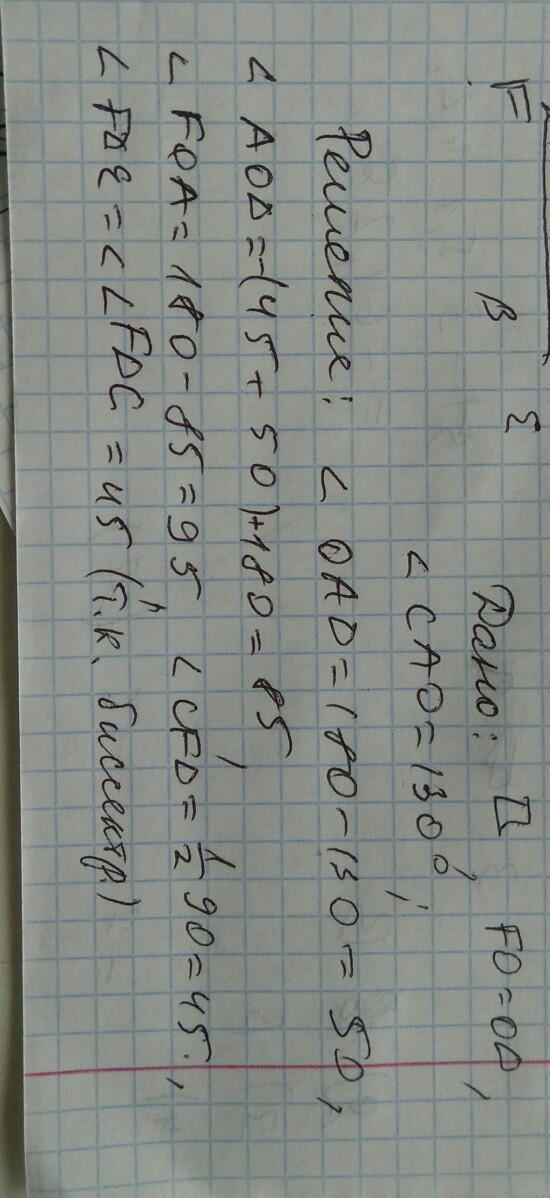 F
В Е
Дано: □ FO=OD,
∠ CAO=130°;
Решение: ∠ OAD=180-130=50,
∠ AOD=-(45+50)+180=85
∠ FOA=180-85=95 ∠ CFD=½ 90=45.,
∠ FDE=<∠FDC=45 (т.к. биссектр.)